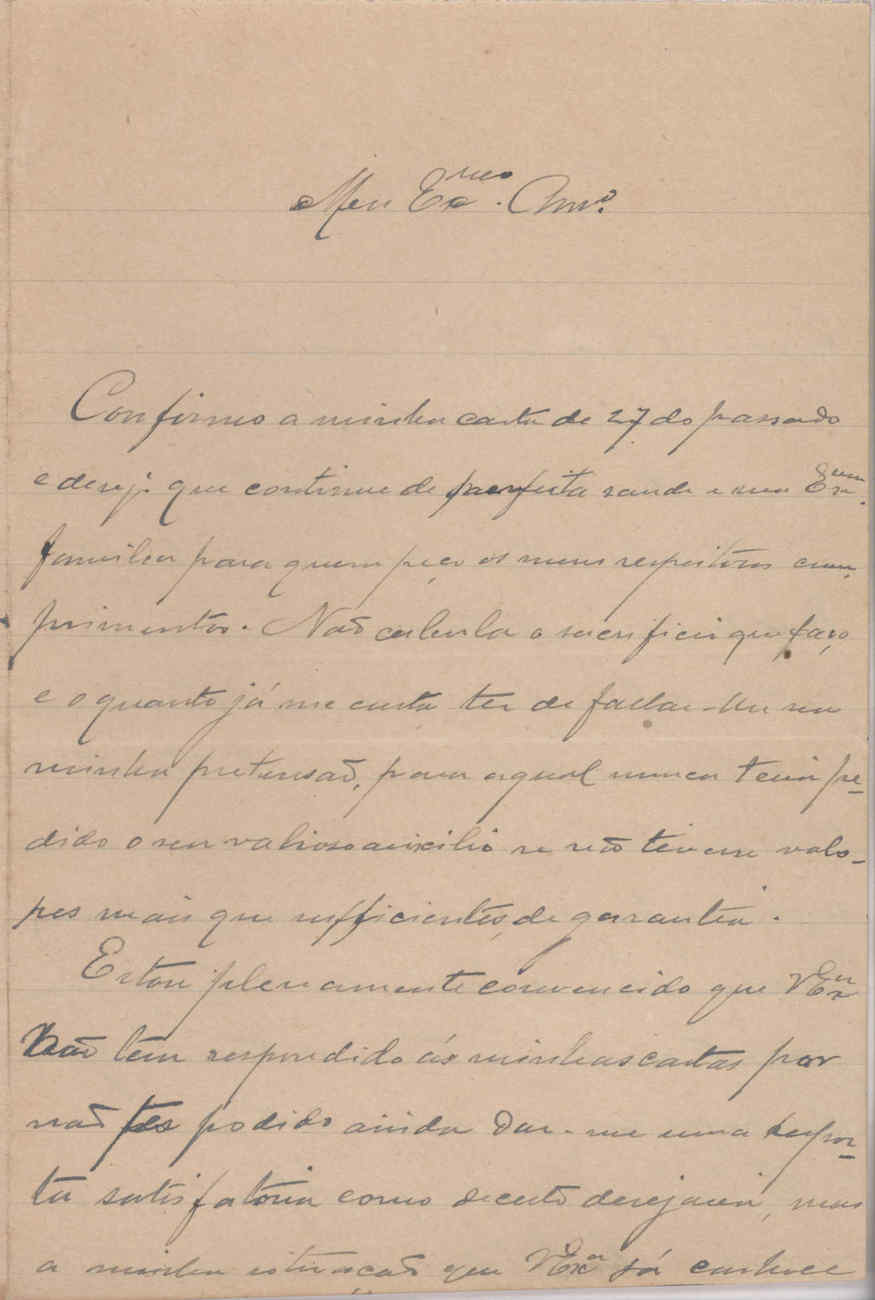 Meu Exmo. Amo.
Confirmo a minha carta de 27 do passado
e desejo que continue de perfeita saude e sua Exma.
familia para quem peço os meus respeitosos cum-
primentos. Não calcula o sacrificio que faço
e o quanto já me custa ter de fallar-lhe na
minha pretensão, para a qual nunca teria pe-
dido o seu valioso auxilio se não tivesse valo-
res mais que sufficientes de garantia.
Estou plenamente convencido que VExa
não tem respondido ás minhas cartas por
não ter podido ainda dar-me uma respos-
ta satisfatoria como decerto desejaria, mas
a minha situação que VExa já conhece